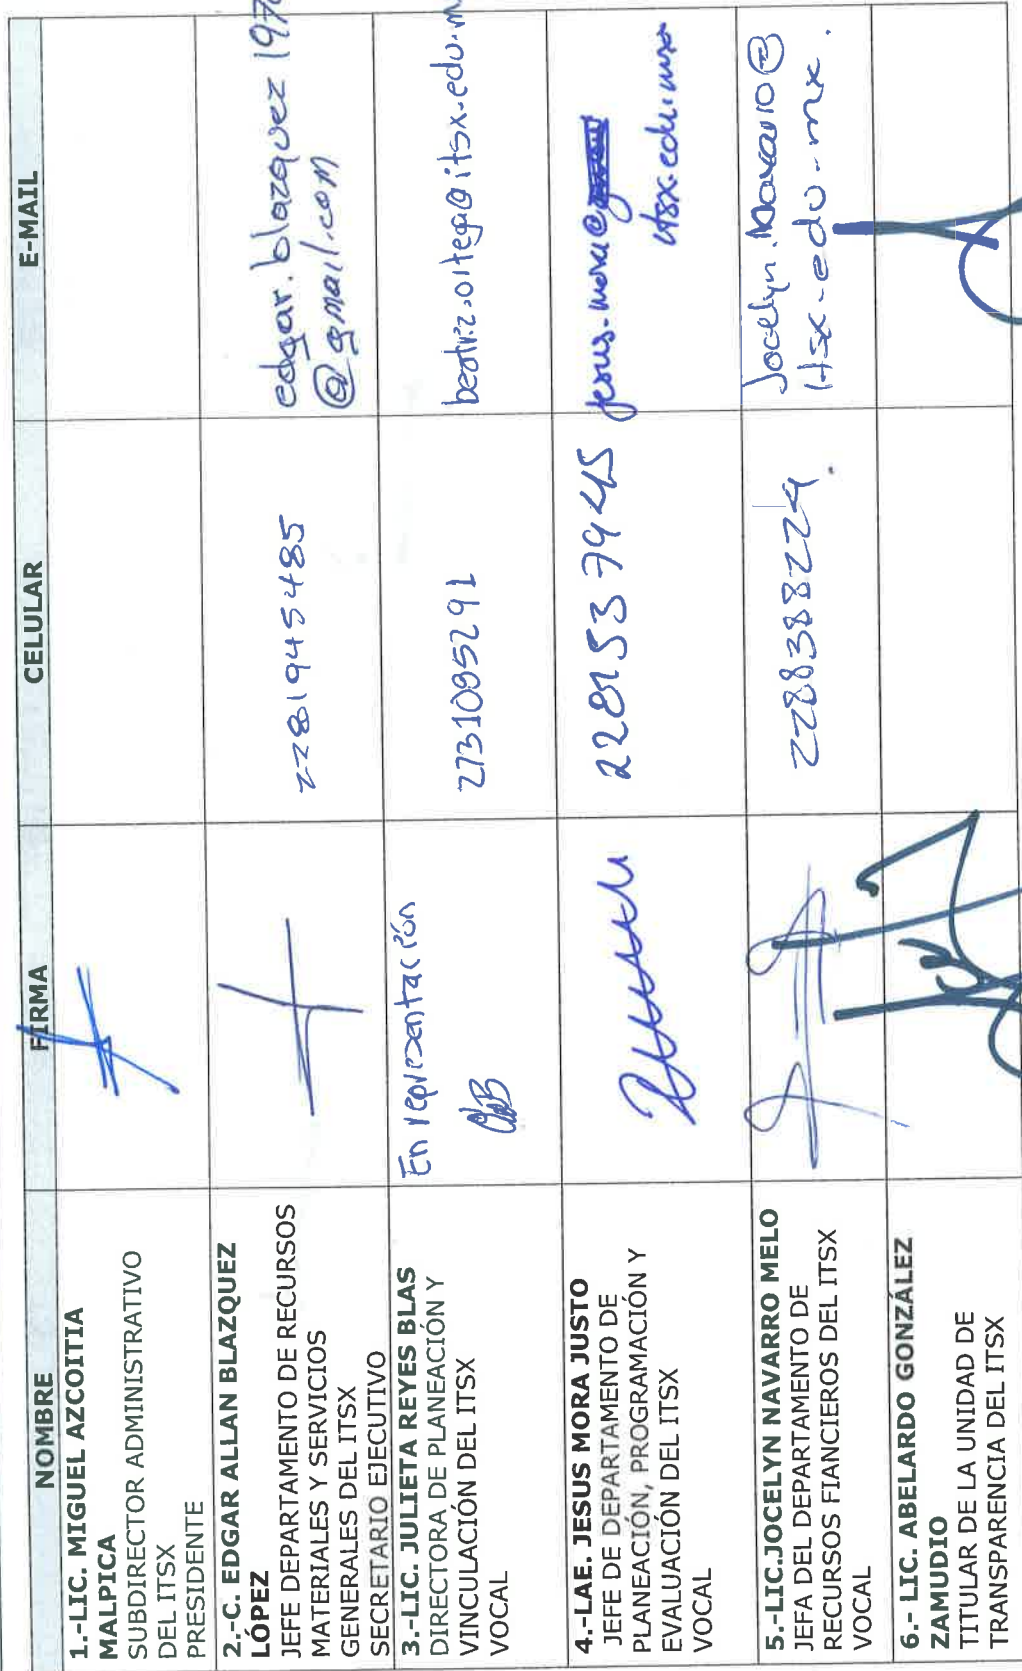 NOMBRE FIRMA CELULAR E-MAIL
1.-LIC. MIGUEL AZCOITIA
MALPICA
SUBDIRECTOR ADMINISTRATIVO
DEL ITSX
PRESIDENTE
2.-C. EDGAR ALLAN BLAZQUEZ
LÓPEZ
JEFE DEPARTAMENTO DE RECURSOS
MATERIALES Y SERVICIOS
GENERALES DEL ITSX
SECRETARIO EJECUTIVO
2281945485
edgar.blazquez 197
@gmail.com
3.-LIC. JULIETA REYES BLAS
DIRECTORA DE PLANEACIÓN Y
VINCULACIÓN DEL ITSX
VOCAL
En representación
2731095291
beatriz.ortega@itsx.edu.m
4.-LAE. JESUS MORA JUSTO
JEFE DE DEPARTAMENTO DE
PLANEACIÓN, PROGRAMACIÓN Y
EVALUACIÓN DEL ITSX
VOCAL
2281537945
jesus.mora@
itsx.edu.mx
5.-LIC.JOCELYN NAVARRO MELO
JEFA DEL DEPARTAMENTO DE
RECURSOS FIANCIEROS DEL ITSX
VOCAL
2288388229.
Jocelyn.Navarro@
itsx.edu.mx.
6.- LIC. ABELARDO GONZÁLEZ
ZAMUDIO
TITULAR DE LA UNIDAD DE
TRANSPARENCIA DEL ITSX